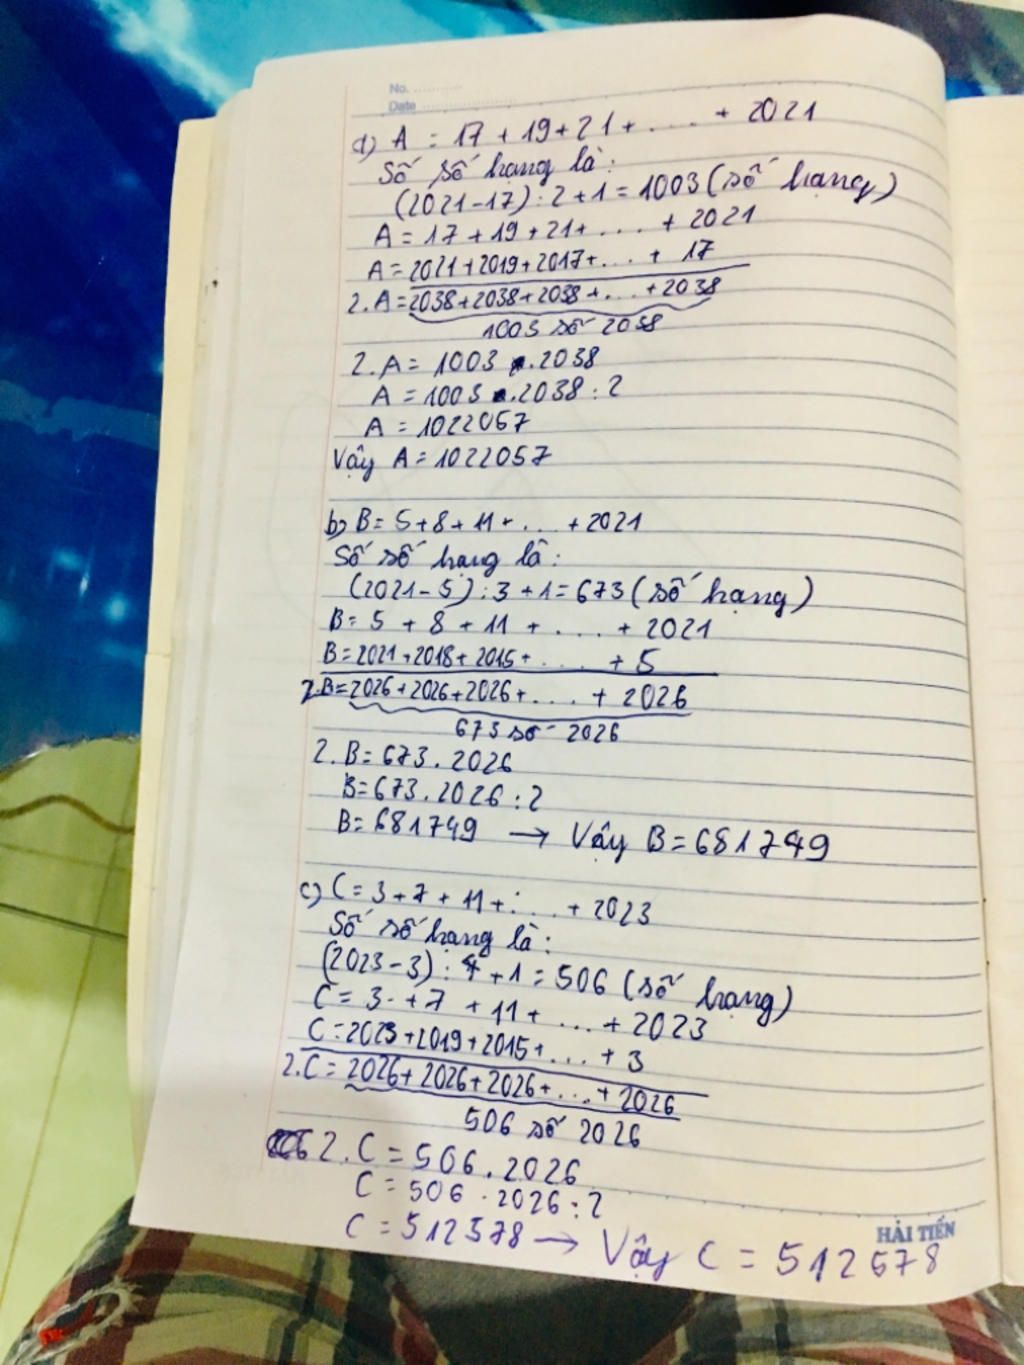 No. ............
Date ......................
a) A = 17 + 19 + 21 + .... + 2021
Số số hạng là:
(2021-17) : 2 + 1 = 1003 (số hạng)
A = 17 + 19 + 21 + .... + 2021
A = 2021 + 2019 + 2017 + ... + 17
2.A = 2038 + 2038 + 2038 + ... + 2038
1003 số 2038
2.A = 1003 . 2038
A = 1003 . 2038 : 2
A = 1022057
Vậy A = 1022057
b) B = 5 + 8 + 11 + ... + 2021
Số số hạng là:
(2021 - 5) : 3 + 1 = 673 (số hạng)
B = 5 + 8 + 11 + .... + 2021
B = 2021 + 2018 + 2015 + .... + 5
2.B = 2026 + 2026 + 2026 + .... + 2026
673 số 2026
2.B = 673 . 2026
B = 673 . 2026 : 2
B = 681749 → Vậy B = 681749
c) C = 3 + 7 + 11 + .... + 2023
Số số hạng là:
(2023 - 3) : 4 + 1 = 506 (số hạng)
C = 3 + 7 + 11 + .... + 2023
C = 2023 + 2019 + 2015 + ... + 3
2.C = 2026 + 2026 + 2026 + ... + 2026
506 số 2026
2.C = 506 . 2026
C = 506 . 2026 : 2
C = 512578 → Vậy C = 512578
HẢI TIẾN